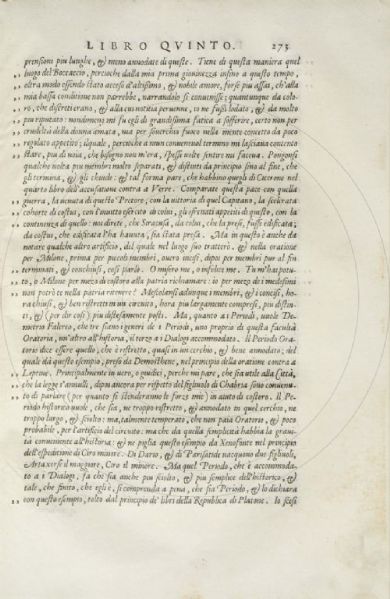 LIBRO QVINTO. 275
prensioni piu lunghe, & meno annodate di queste. Tiene di questa maniera quel
luogo del Boccaccio, percioche dalla mia prima giovinezza infino a questo tempo,
oltra modo essendo stato acceso d'altissimo, & nobile amore, forse piu assai, ch'alla
mia bassa conditione non parrebbe, narrandolo si convenisse; quantunque da colo-
ro, che discreti erano, & alla cui notitia pervenne, io ne fussi lodato, & da molto
piu riputato: nondimeno mi fu egli di grandissima fatica a sofferire, certo non per
crudeltà della donna amata, ma per soverchio fuoco nella mente concetto da poco
regolato appetito; ilquale, percioche a niun convenevol termino mi lasciava contento
stare, piu di noia, che bisogno non m'era, spesse volte sentire mi faceva. Pongonsi
qualche volta piu membri molto separati, & distinti da principio sino al fine, che
gli termina, & gli chiude: & tal forma pare, che habbino quegli di Cicerone nel
quarto libro dell'accusatione contra a Verre. Comparate questa pace con quella
guerra, la venuta di questo Pretore; con la vittoria di quel Capitano, la scelerata
cohorte di costui, con l'invitto esercito di colui, gli sfrenati appetiti di questo, con la
continenza di quello: voi direte, che Siracusa, da colui, che la prese, fussi edificata;
da costui, che edificata l'ha havuta, sia stata presa. Ma in questo è anche da
notare qualche altro artificio, del quale nel luogo suo tratterò. & nella oratione
per Milone, prima per piccoli membri, overo incisi, dipoi per membri pur al fin
terminati, & conchiusi, così parlò. O misero me, o infelice me. Tu m'hai potu-
to, o Milone per mezo di costoro alla patria richiamare: io per mezo dei medesimi
non potrò te nella patria ritenere? Mescolansi adunque i membri, & i concisi, ho-
ra chiusi, & ben ristretti in un circuito, hora piu largamente compresi, piu distin-
ti, & (per dir così) piu distesamente posti. Ma, quanto a i Periodi, vuole De-
metrio Falereo, che tre siano i generi de i Periodi, uno proprio di questa facultà
Oratoria, un'altro all'historia, il terzo a i Dialogi accommodato. Il Periodo Orato-
rio dice essere quello, che è ristretto, quasi in un cerchio, & bene annodato; del
quale dà questo esempio, preso da Demosthene, nel principio della oratione contra a
Leptene. Principalmente in vero, o giudici, perche mi pare, che sia utile alla Città,
che la legge s'annulli, dipoi ancora per rispetto del figliuolo di Chabria sono convenu-
to di parlare (per quanto si stenderanno le forze mie) in aiuto di costoro. Il Pe-
riodo historico vuole, che sia, ne troppo ristretto, & annodato in quel cerchio, ne
troppo largo, & sciolto; ma, talmente temperato, che non paia Oratorio, & poco
probabile, per l'artificio del circuito: ma che da quella semplicità habbia la gravi-
tà conveniente all'historia: & ne poglia questo esempio da Xenofonte nel principio
dell'espeditione di Ciro minore. Di Dario, & di Parisatide nacquono due figliuoli,
Artaxerse il maggiore, Ciro il minore. Ma quel Periodo, che è accommoda-
to a i Dialogi, fa che sia anche piu sciolto, & piu semplice dell'historico, &
tale, che finito, che egli è, si comprenda a pena, che sia Periodo, & lo dichiara
con questo esempio, tolto dal principio de' libri della Republica di Platone. Io scesi